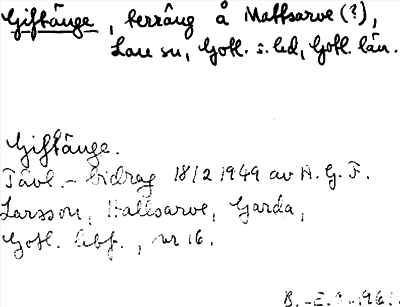 Giftänge, terräng å Mattsarve (?),
Lau sn, Gotl. s:a hd, Gotl. län.
Giftänge.
Tävl.-bidrag 18/2 1949 av H. G. F.
Larsson, Hallsarve, Garda,
Gotl. , nr 16.
B.-E.